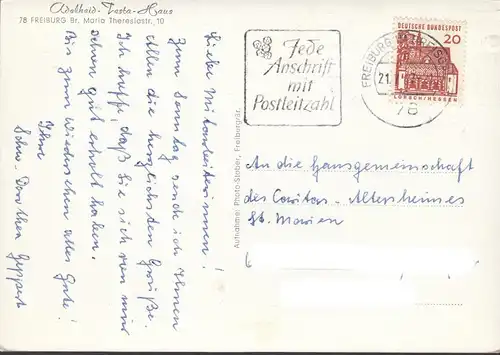 Adelheid-Testa-Haus
78 FREIBURG Br. Maria Theresiastr. 10
Liebe Mitarbeiterinnen!
Zum Sonntag sende ich Ihnen
Allen die herzlichsten Grüße.
Ich hoffe, daß Sie sich von mir
schon gut erholt haben.
Bis zum Wiedersehen alles Gute!
Ihre
Schw. Dorothea Geppert
Aufnahme: Photo-Stober, Freiburg/Br.
Jede
Anschrift
mit
Postleitzahl
FREIBURG
21.
78
DEUTSCHE BUNDESPOST
20
LORSCH/HESSEN
An die Hausgemeinschaft
des Caritas-Altersheimes
St. Marien